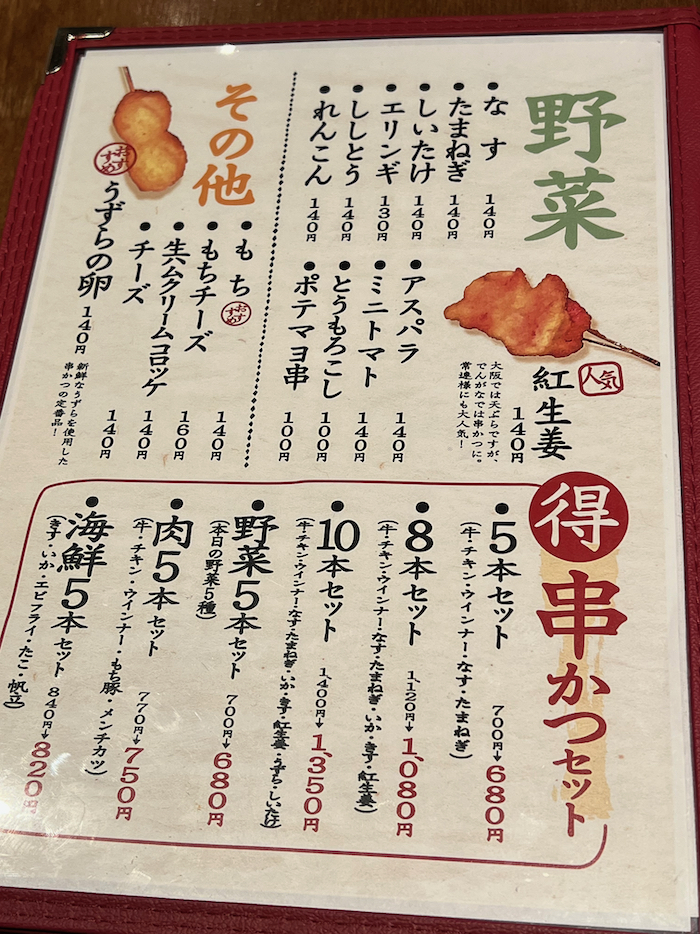 野菜
・なす 140円
・たまねぎ 140円
・しいたけ 140円
・エリンギ 130円
・ししとう 140円
・れんこん 140円
・アスパラ 140円
・ミニトマト 140円
・とうもろこし 100円
・ポテマヨ串 100円
人気
紅生姜 140円
大阪では天ぷらですが、
でんがなでは串かつに。
常連様にも大人気！
その他
・もち おすすめ 140円
・もちチーズ 160円
・生ハムクリームコロッケ 140円
・チーズ 140円
おすすめ
うずらの卵 140円
新鮮なうずらを使用した
串かつの定番品！
得 串かつセット
・5本セット 700円→680円
（牛・チキン・ウインナー・なす・たまねぎ）
・8本セット 1,120円→1,080円
（牛・チキン・ウインナー・なす・たまねぎ・いか・きす・紅生姜）
・10本セット 1,400円→1,350円
（牛・チキン・ウインナー・なす・たまねぎ・いか・きす・紅生姜・うずら・しいたけ）
・野菜5本セット 700円→680円
（本日の野菜5種）
・肉5本セット 770円→750円
（牛・チキン・ウインナー・もち豚・メンチカツ）
・海鮮5本セット 840円→820円
（きす・いか・エビフライ・たこ・帆立）